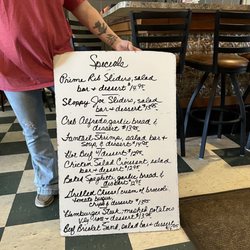 Specials
Prime Rib Sliders, salad
bar & dessert $14.95
Sloppy Joe Sliders, salad
bar & dessert $13.95
Crab Alfredo, garlic bread &
dessert $13.95
Fantail Shrimp, salad bar &
soup & dessert $14.95
Hot Beef & dessert $13.95
Chicken Salad Croissant, salad
bar & dessert
Baked Spaghetti, garlic bread, &
dessert
Grilled Cheese / cream of broccoli,
tomato bisque,
chips & dessert
Hamburger Steak, mashed potatoes
veg, roll & dessert $13.95
Beef Brisket Sand, salad bar & dessert